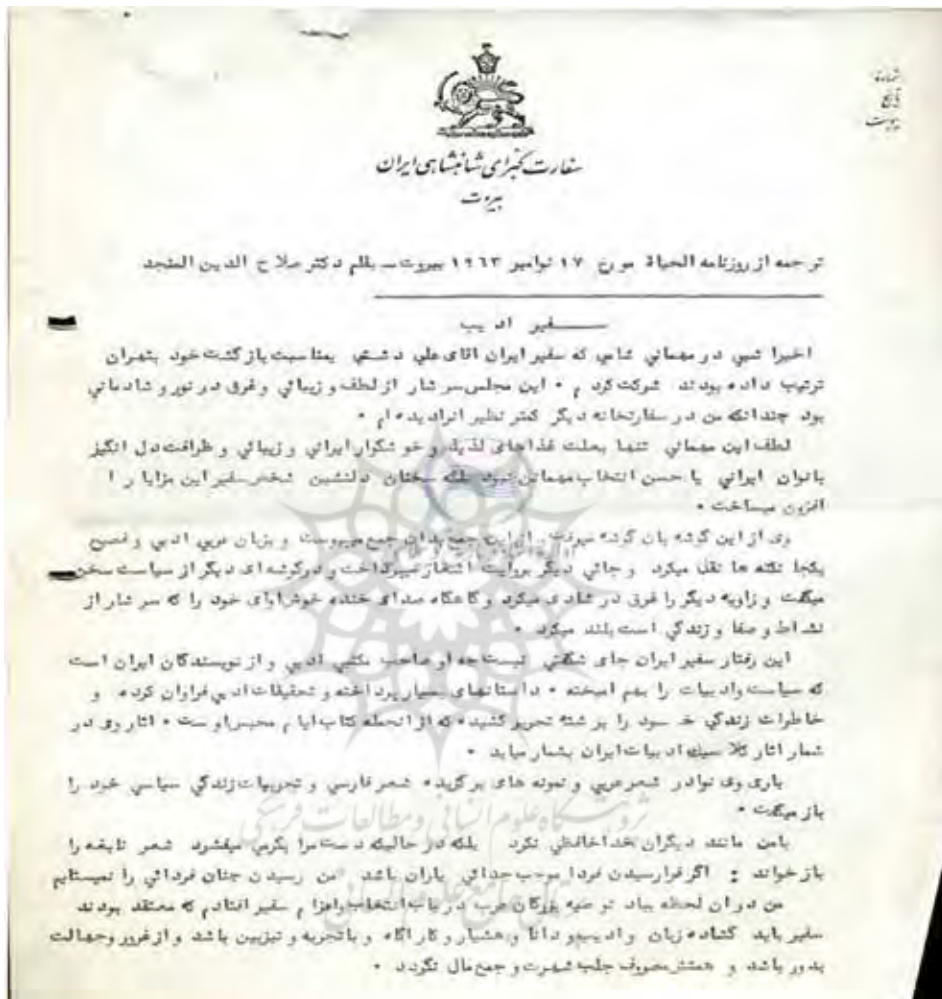 شماره
تاریخ
پیوست
سفارت کبرای شاهنشاهی ایران
بیروت
ترجمه از روزنامه الحیاة مورخ ۱۷ نوامبر ۱۹۶۳ بیروت ـ بقلم دکتر صلاح الدین المنجد
سفیر ادیب
اخیرا شبی در مهمانی شامی که سفیر ایران اقای علی دشتی بمناسبت بازگشت خود بتهران
ترتیب داده بودند شرکت کردم . این مجلس سرشار از لطف و زیبائی و غرق در نور و شادمانی
بود چندانکه من در سفارتخانه دیگر کمتر نظیر انرا دیده ام .
لطف این مهمانی تنها بعلت غذاهای لذیذ و خوشگوار ایرانی و زیبائی و ظرافت دل انگیز
بانوان ایرانی یا حسن انتخاب مهمانان نبود بلکه سخنان دلنشین شخص سفیر این مزایا را
افزون میساخت .
وی از این گوشه بان گوشه میرفت از این جمع بدان جمع میپیوست و بزبان عربی ادبی و فصیح
یکجا نکته ها نقل میکرد و جائی دیگر بروایت اشعار میپرداخت و در گوشه ای دیگر از سیاست سخن
میگفت و زاویه دیگر را غرق در شادی میکرد و گاهگاه صدای خنده خوش اوای خود را که سرشار از
نشاط و صفا و زندگی است بلند میکرد .
این رفتار سفیر ایران جای شگفتی نیست چه او صاحب مکتبی ادبی و از نویسندگان ایران است
که سیاست و ادبیات را بهم امیخته . داستانهای بسیار پرداخته و تحقیقات ادبی فراوان کرده و
خاطرات زندگی خود را برشته تحریر کشیده که از انجمله کتاب ایام محبس اوست . اثار وی در
شمار اثار کلاسیک ادبیات ایران بشمار میاید .
باری وی نوادر شعر عربی و نمونه های برگزیده شعر فارسی و تجربیات زندگی سیاسی خود را
باز میگفت .
بامن مانند دیگران خداحافظی نکرد بلکه در حالیکه دست مرا بگرمی میفشرد شعر نابغه را
باز خواند : اگر فرا رسیدن فردا موجب جدائی یاران باشد من رسیدن چنان فردائی را نمیستایم
من در ان لحظه بیاد توصیه بزرگان عرب در باب انتخاب و اعزام سفیر افتادم که معتقد بودند
سفیر باید گشاده زبان و ادیب و دانا و هشیار و کاراگاه و باتجربه و تیزبین باشد و از غرور و جهالت
بدور باشد و همتش مصروف جلب شهرت و جمع مال نگردد .
پژوهشگاه علوم انسانی و مطالعات فرهنگی
پرتال جامع علوم انسانی